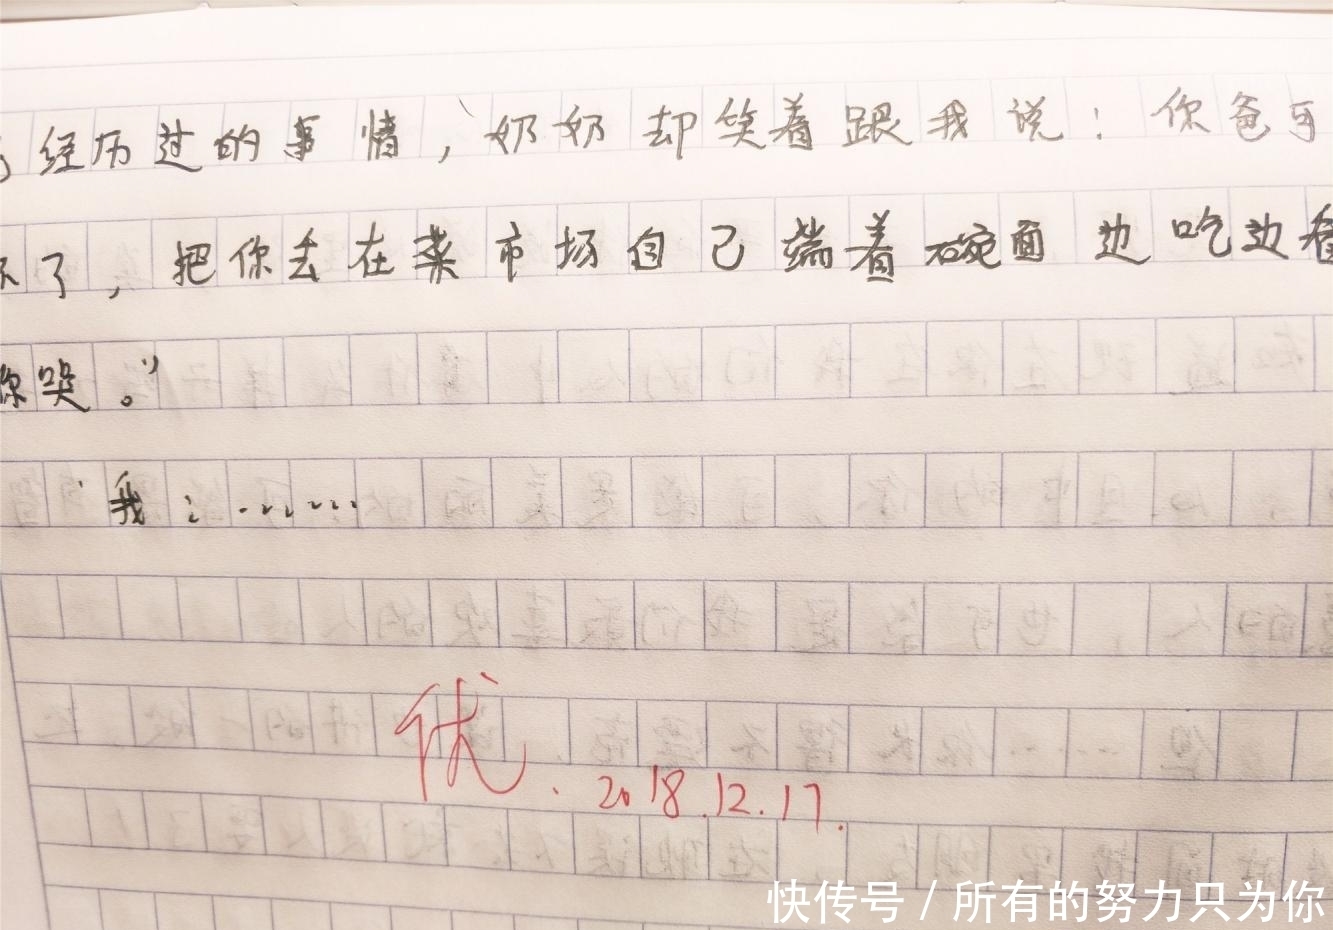 经历过的事情，奶奶却笑着跟我说：你爸可
了，把你丢在菜市场自己端着碗面边吃边看
你哭。”
我：……
优.
2018.12.17.
快传号 / 所有的努力只为你